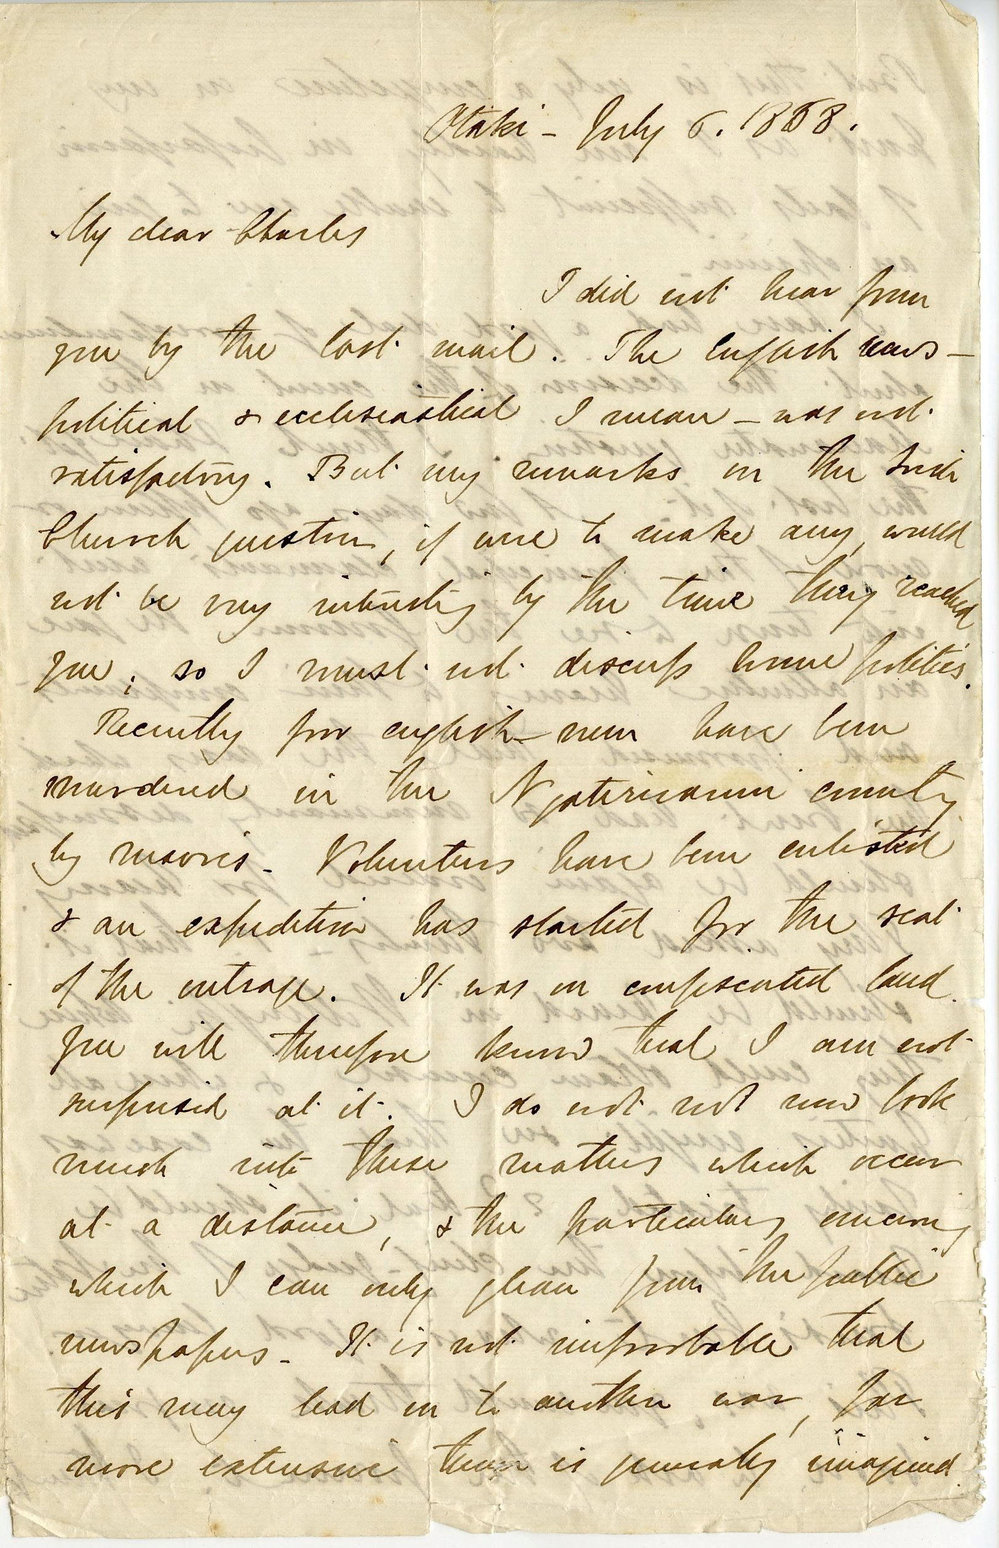 Otaki - July 6. 1868.
My dear Charles
I did not hear from
you by the last mail. The English news -
political & ecclesiastical I mean - was not
satisfactory. But my remarks on the Irish
Church question, if were to make any, would
not be very interesting by the time they reached
you; so I must not discuss home politics.
Recently four english-men have been
murdered in the Ngatiruanui country
by maoris. Volunteers have been enlisted
& an expedition has started for the seat
of the outrage. It was on confiscated land.
You will therefore know that I am not
surprised at it. I do not not now look
much into these matters which occur
at a distance, & the particulars concerning
which I can only glean from the public
newspapers. It is not improbable that
this may lead on to another war, far
more extensive than is generally imagined.